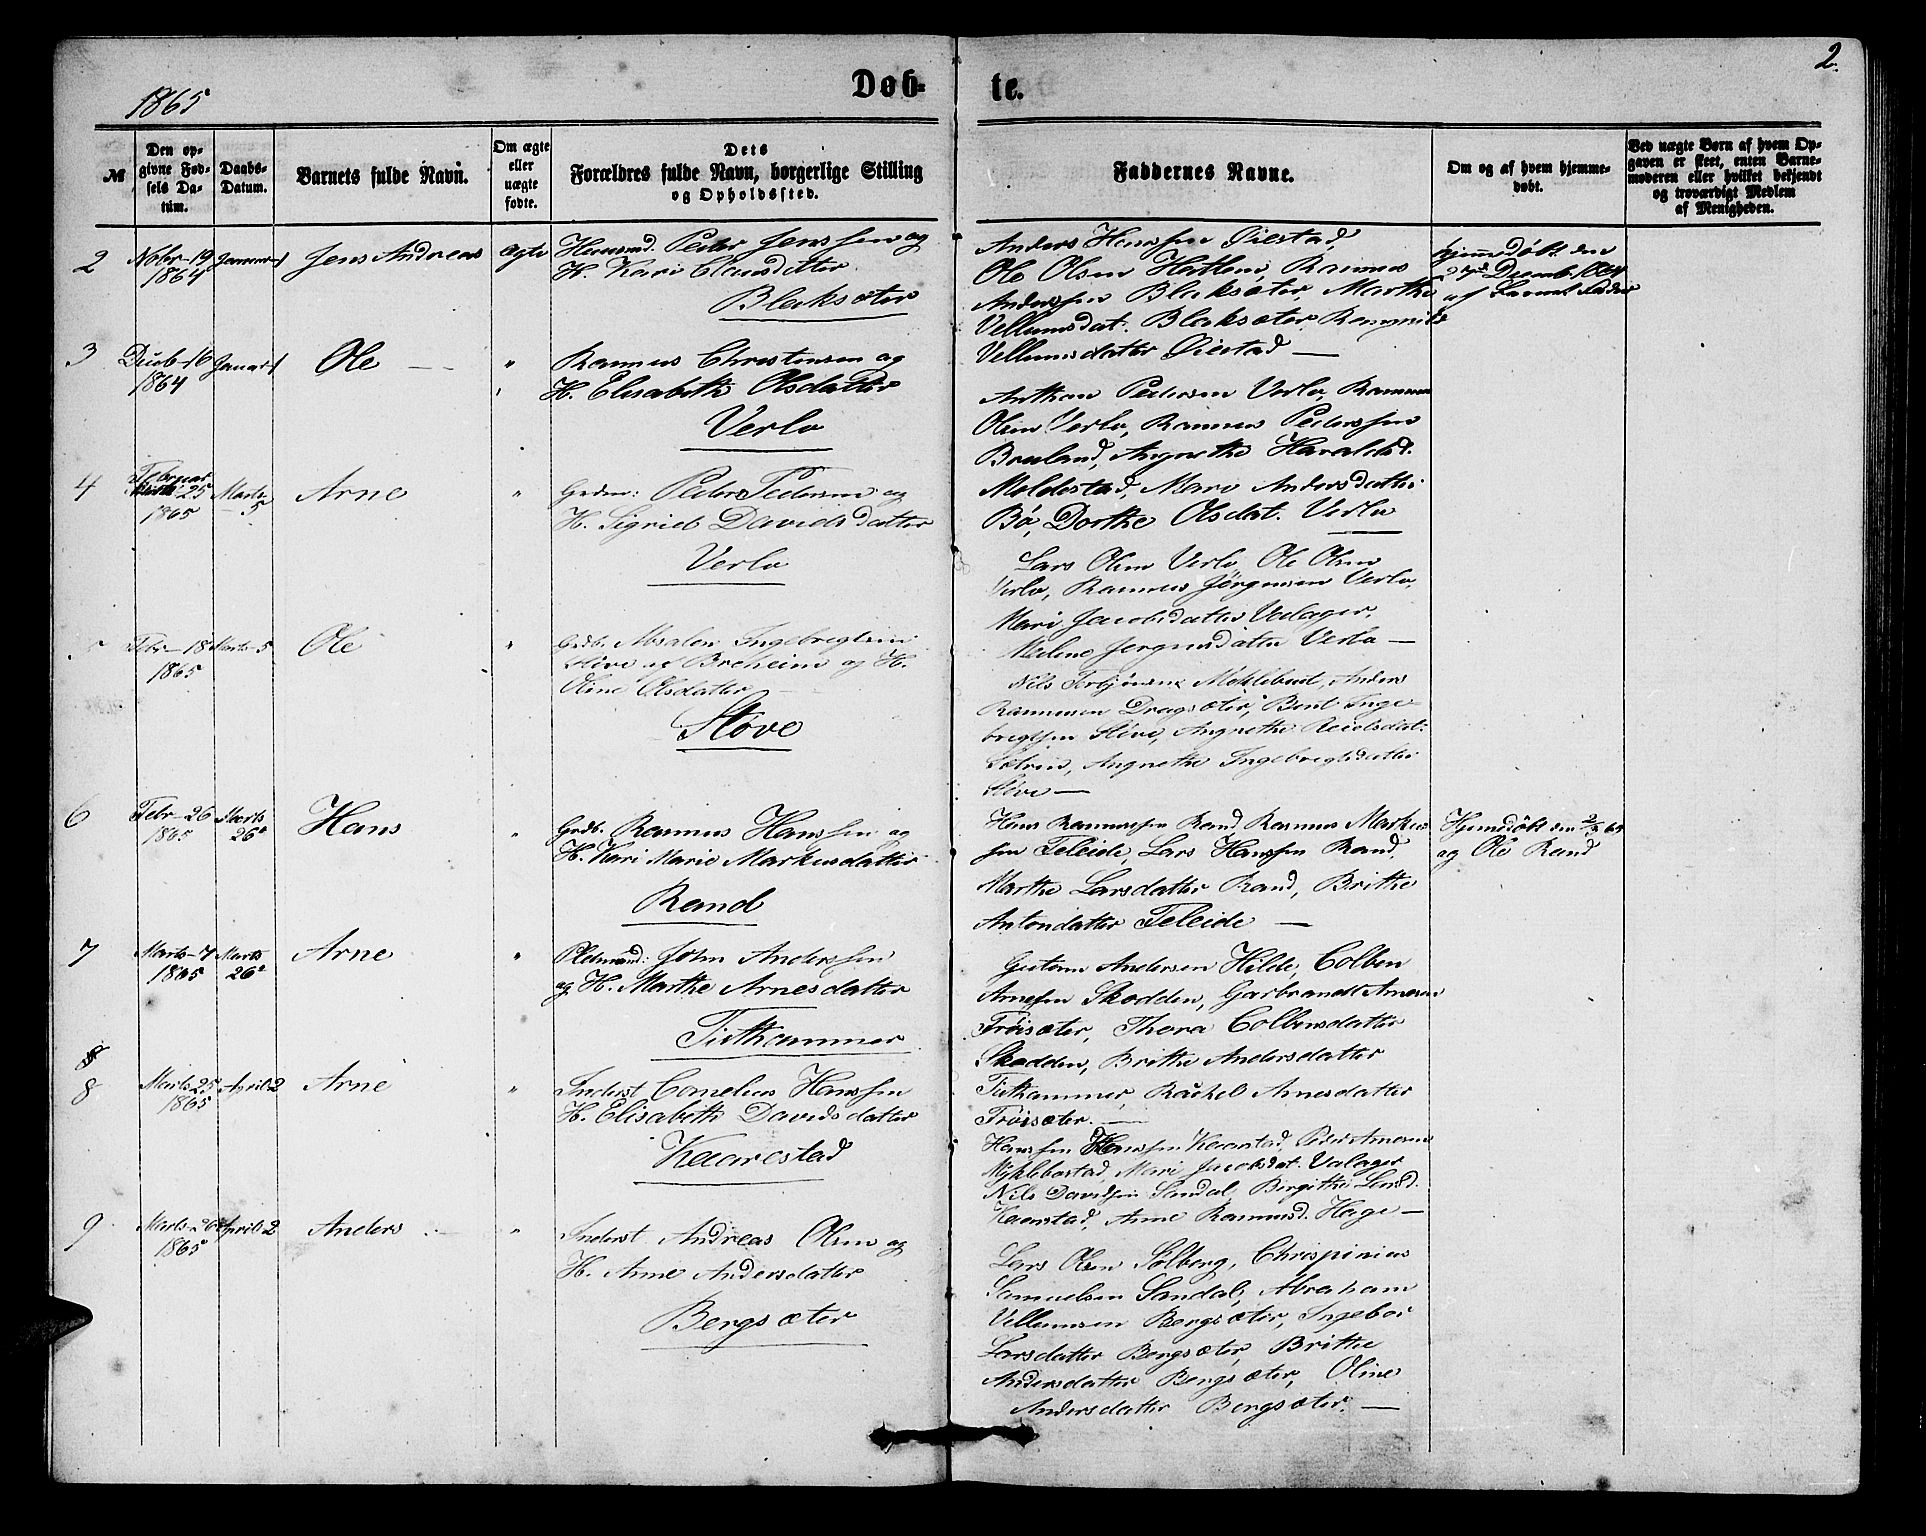 1865
Døb-
te.
2.
№
Den op-
givne Fød-
sels Da-
tum.
Daabs-
Datum.
Barnets fulde Navn.
Om ægte
eller
uægte
fødte.
Dets
Forældres fulde Navn, borgerlige Stilling
og Opholdssted.
Faddernes Navne.
Om og af hvem hjemme-
døbt.
Ved uægte Børn af hvem Op-
gaven er skeet, enten Barne-
moderen eller hvilket bekjendt
og troværdigt Medlem
af Menigheden.
2
Nobr-19
1864
Januar-1
Jens Andreas
Ægte
Huusmd. Peder Jenssen og
H. Kari Clausdatter
Blaksæter
Anders Hanssen Øiestad,
Ole Olsen Hetlem, Rasmus
Anderssen Blaksæter, Marthe
Vellumsdat. Blaksæter,
Vellumsdatter Øiestad —
hjemdøbt den
27de Decemb. 1864
af
3
Decb-16
1864
Januar 1
Ole —
"
Rasmus Christensen og
H. Elisabeth Olsdatter
Verlo
Anthon Pedersen Verlo, Rasmus
Olsen Verlo, Rasmus Pederssen
Bruland, Angnethe Haraldsd.
Meldestad, Mari Andersdatter
Bø, Dorthe Olsdat. Verlo
4
Februar
25
1865
Marts
5
Arne
"
Grdm: Peder Pedersen og
H. Sigrid Davidsdatter
Verlo
Lars Olsen Verlo, Ole Olsen
Verlo, Rasmus Jørgensen Verlo,
Mari Jacobsdatter Valager,
Malene Jørgensdatter Verlo —
5
Febr-18
1865
Marts-5
Ole
"
Grdb. Absalon Ingebregtsen
Støve af Breheim og H.
Oline Olsdatter
Støve
Nils Torbjönsen Myklebust, Anders
Rasmussen Dragsæter, Bent Inge-
bregtsen Støve, Angnethe
Sætren, Angnethe Ingebregtsdatter
Støve —
6
Febr-26
1865
Marts
26de
Hans
"
Grdb. Rasmus Hanssen og
H. Kari Marie Markusdatter
Rand
Hans Rasmussen Rand, Rasmus Markus
sen Teleide, Lars Hanssen Rand,
Marthe Larsdatter Rand, Brithe
Antondatter Teleide —
Hjemdøbt den 2/3 65
ag Ole Rand
7
Marts-7
1865
Marts
26de
Arne
"
Pladsmand: John Anderssen
og H. Marthe Arnesdatter
Tisthammer
Gutorm Andersen Hilde, Colben
Arnessen Skodden, Garbrandt Arnesen
Frøisæter, Thora Colbensdatter
Skodden, Brithe Andersdatter
Tisthammer, Rachel Arnesdatter
Frøisæter. —
8
Marts 25
1865
April 2
Arne
"
Inderst Cornelius Hanssen
H. Elisabeth Davidsdatter
Kaarestad
Hanssen Hanssen Kaarstad, Peder Arnesen
Myklebostad, Mari Jacobsdat. Valager
Nils Davidsen Sandal, Birgithe Larsd.
Kaarstad, Anne Rasmusd. Hage —
9
Marts 26
1865
April 2
Anders
"
Inderst Andreas Olsen og
H. Anne Andersdatter
Bergsæter
Lars Olsen Solberg, Chrispinius
Samuelsen Sandal, Abraham
Vellumsen Bergsæter, Ingebor
Larsdatter Bergsæter, Brithe
Andersdatter Bergsæter, Oline
Andersdatter Bergsæter. —